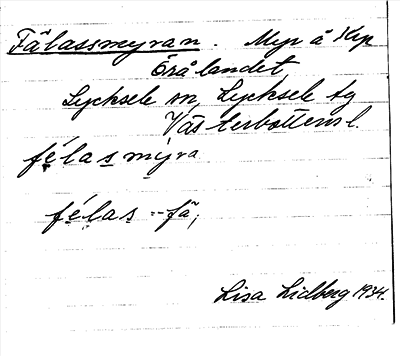 Fälassmyran. Myr å Kkp
Örålandet,
Lycksele sn, Lycksele tg
Västerbottens l.
félasmyra
félas -- fä,
Lisa Lidberg 1934.